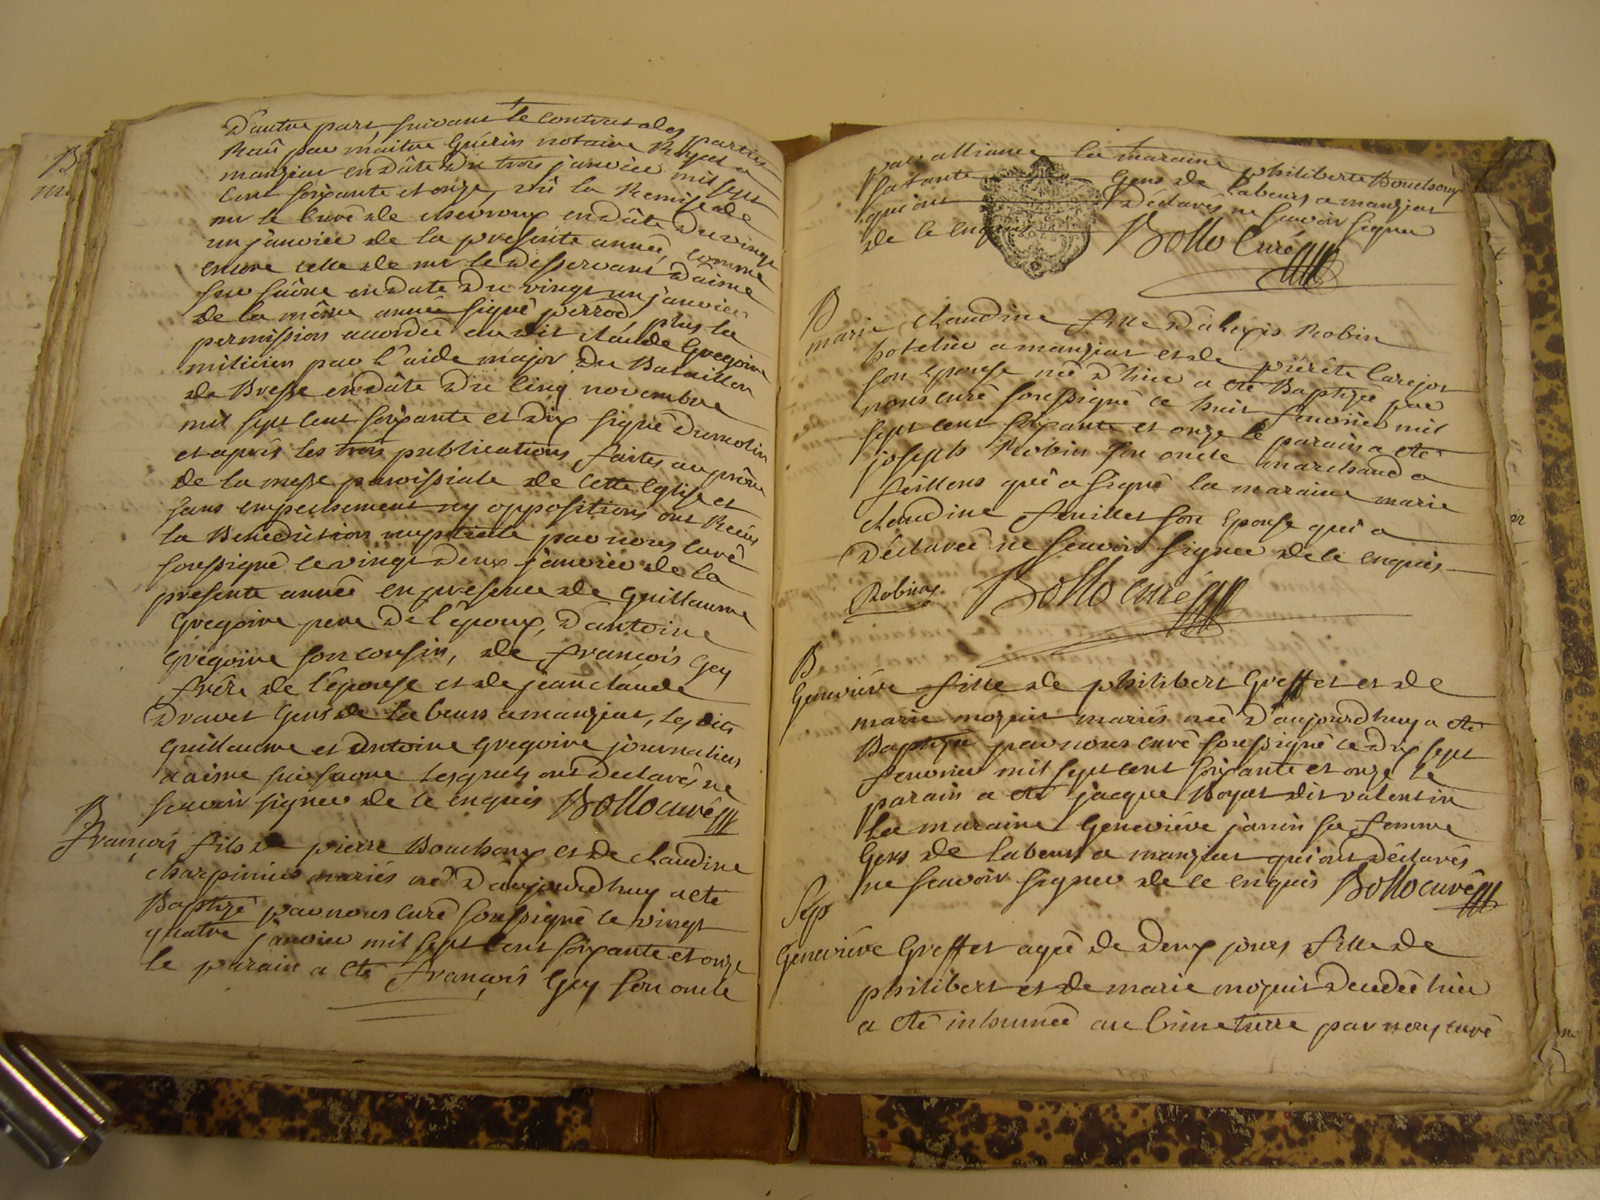 d'autre part suivant le contrat des parties
Reçû par maitre Guérin notaire Royal a
manziat en dâte du trois janvier mil sept
cent soixante et onze, vû la Remise de
mr le Curé de chevroux en dâte du vingt
un janvier de la presente année, comme
encore celle de mr le desservant d'aisne
sur saône en date du vingt un janvier
de la même année signé perrod plus la
permission accordée au dit Claude Gregoire
milicien par l'aide major du Bataillon
de Bresse en dâte du cinq novembre
mil sept cent soixante et dix signé Dumolin
et après les trois publications faites au prône
de la messe paroissiale de cette Eglise et
sans empechement ny oppositions ont Reçus
la Bénédiction nuptialle par nous curé
soussigné le vingt deux janvier de la
presente année en présence de Guillaume
Gregoire pere de l'époux, d'antoine
Gregoire son cousin, de françois Gey
frère de l'epouse et de jean claude
Dravet Gens de labeurs a manziat, les dits
Guillaume et antoine Gregoire journaliers
d'aisne sur saone lesquels ont declarés ne
scavoir signer de ce enquis Bollo curé
B
françois fils de pierre Bouchoux et de claudine
charpiniere mariés né d'aujourdhuy a eté
Baptizé par nous curé soussigné le vingt
quatre janvier mil sept cent soixante et onze
le parain a eté françois Gey son oncle
par alliance la maraine philiberte Bouchoux
sa tante Gens de labeurs a manziat
qui ont déclarés ne scavoir signer
de ce enquis Bollo Curé
B
marie claudine fille d'alexis Robin
hotelier a manziat et de pierrète Carejot
son epouse née d'hier a eté Baptizée par
nous curé soussigné le huit fevrier mil
sept cent soixante et onze le parain a eté
joseph Robin son oncle marchand a
feillens qui a signé la maraine marie
claudine feuillet son epouse qui a
déclarée ne scavoir signer de ce enquis
Robin Bollo curé
B
Geneviéve fille de philibert Greffet et de
marie moguit mariés née d'aujourdhuy a eté
Baptizée par nous curé soussigné le dix sept
fevrier mil sept cent soixante et onze le
parain a eté jacque Royat dit valentin
la maraine Geneviéve janin sa femme
Gens de labeurs a manziat qui ont déclarés
ne scavoir signer de ce enquis Bollo curé
Sep
Geneviéve Greffet agée de deux jours fille de
philibert et de marie moguit decedée hier
a eté inhumée au Cimetierre par nous curé